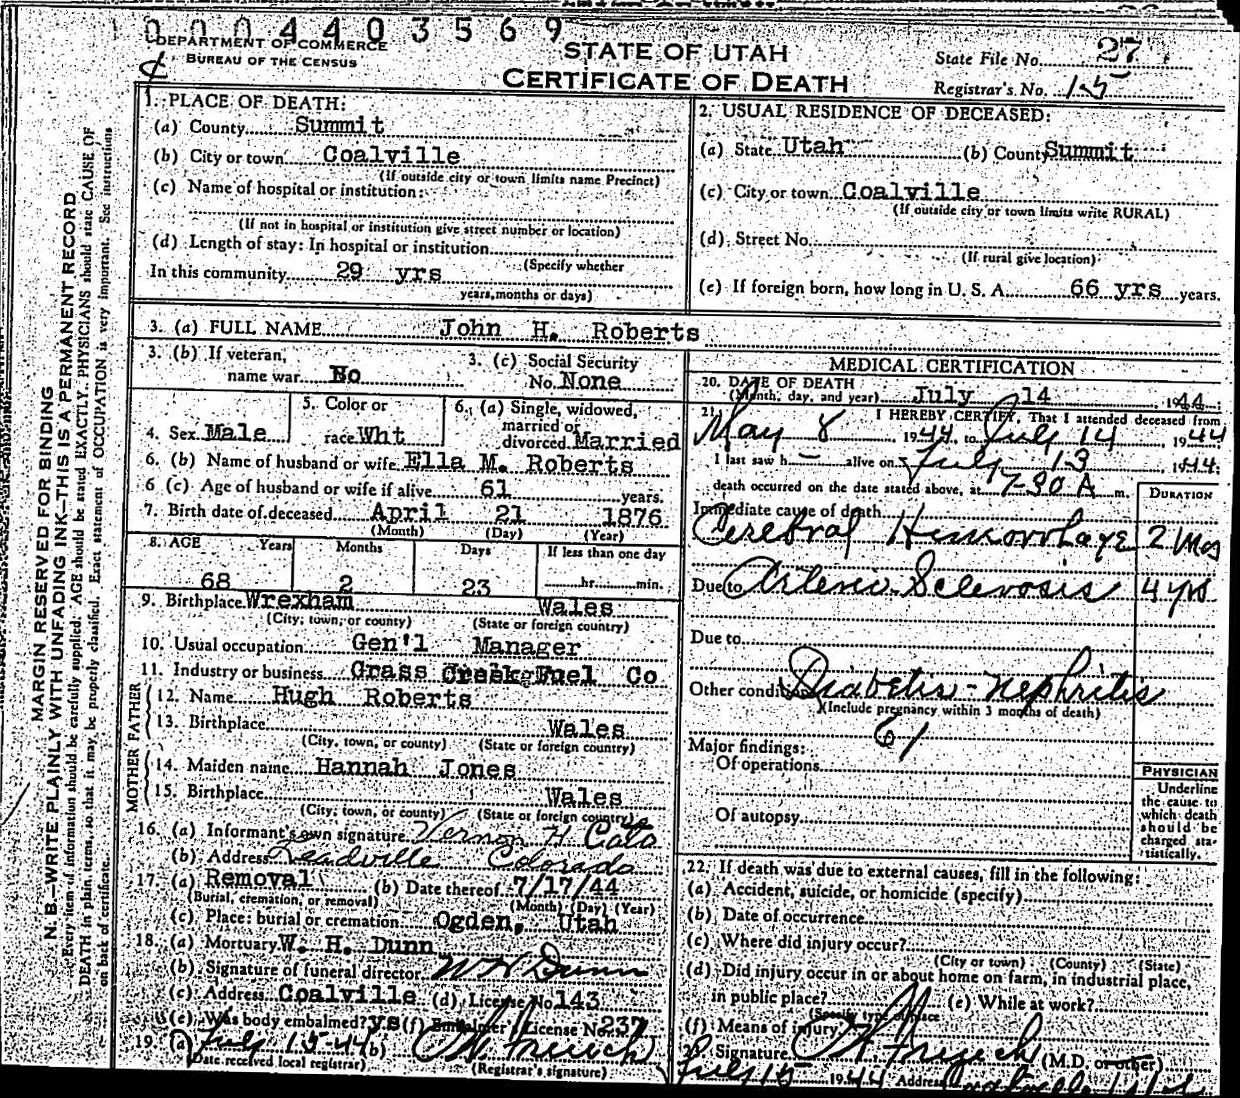 0 0 0 4 4 0 3 5 6 9
DEPARTMENT OF COMMERCE
BUREAU OF THE CENSUS
STATE OF UTAH
CERTIFICATE OF DEATH
State File No. 27
Registrar's No. 15
MARGIN RESERVED FOR BINDING
N. B.—WRITE PLAINLY WITH UNFADING INK—THIS IS A PERMANENT RECORD
Every item of information should be carefully supplied. AGE should be stated EXACTLY. PHYSICIANS should state CAUSE OF
DEATH in plain terms, so that it may be properly classified. Exact statement of OCCUPATION is very important. See instructions
on back of certificate.
1. PLACE OF DEATH:
(a) County Summit
(b) City or town Coalville
(If outside city or town limits name Precinct)
(c) Name of hospital or institution:
(If not in hospital or institution give street number or location)
(d) Length of stay: In hospital or institution
(Specify whether
In this community 29 yrs
years, months or days)
2. USUAL RESIDENCE OF DECEASED:
(a) State Utah (b) County Summit
(c) City or town Coalville
(If outside city or town limits write RURAL)
(d) Street No.
(If rural give location)
(e) If foreign born, how long in U. S. A. 66 yrs years.
3. (a) FULL NAME John H. Roberts
3. (b) If veteran, name war No
3. (c) Social Security No. None
4. Sex Male
5. Color or race Wht
6. (a) Single, widowed, married or divorced Married
6. (b) Name of husband or wife Ella M. Roberts
6 (c) Age of husband or wife if alive 61 years.
7. Birth date of deceased April 21 1876
(Month) (Day) (Year)
8. AGE Years Months Days If less than one day
68 2 23 hr. min.
9. Birthplace Wrexham Wales
(City, town, or county) (State or foreign country)
10. Usual occupation Gen'l Manager
11. Industry or business Grass Creek Fuel Co
FATHER
12. Name Hugh Roberts
13. Birthplace Wales
(City, town, or county) (State or foreign country)
MOTHER
14. Maiden name Hannah Jones
15. Birthplace Wales
(City, town, or county) (State or foreign country)
16. (a) Informant's own signature Vernon H Cato
(b) Address Leadville Colorado
17. (a) Removal (b) Date thereof 7/17/44
(Burial, cremation, or removal) (Month) (Day) (Year)
(c) Place: burial or cremation Ogden, Utah
18. (a) Mortuary W. H. Dunn
(b) Signature of funeral director W H Dunn
(c) Address Coalville (d) License No. 143
(e) Was body embalmed? ys (f) Embalmer's License No. 237
19. (a) July 15-44 (b)
(Date received local registrar) (Registrar's signature)
MEDICAL CERTIFICATION
20. DATE OF DEATH
(Month, day, and year) July 14 1944
21. I HEREBY CERTIFY, That I attended deceased from
May 8 1944, to July 14, 1944
I last saw h alive on July 13 1944
death occurred on the date stated above, at 7-30 A m.
DURATION
Immediate cause of death
Cerebral Hemorrhage 2 Mos
Due to Arterio-Sclerosis 4 yrs
Due to
Other conditions Diabetis-nephritis
(Include pregnancy within 3 months of death)
61
Major findings:
Of operations
Of autopsy
PHYSICIAN
Underline
the cause to
which death
should be
charged sta-
tistically.
22. If death was due to external causes, fill in the following:
(a) Accident, suicide, or homicide (specify)
(b) Date of occurrence
(c) Where did injury occur?
(City or town) (County) (State)
(d) Did injury occur in or about home on farm, in industrial place,
in public place? (e) While at work?
(Specify type of place
(f) Means of injury
23. Signature (M.D. or other)
July 15 1944 Address Coalville Utah